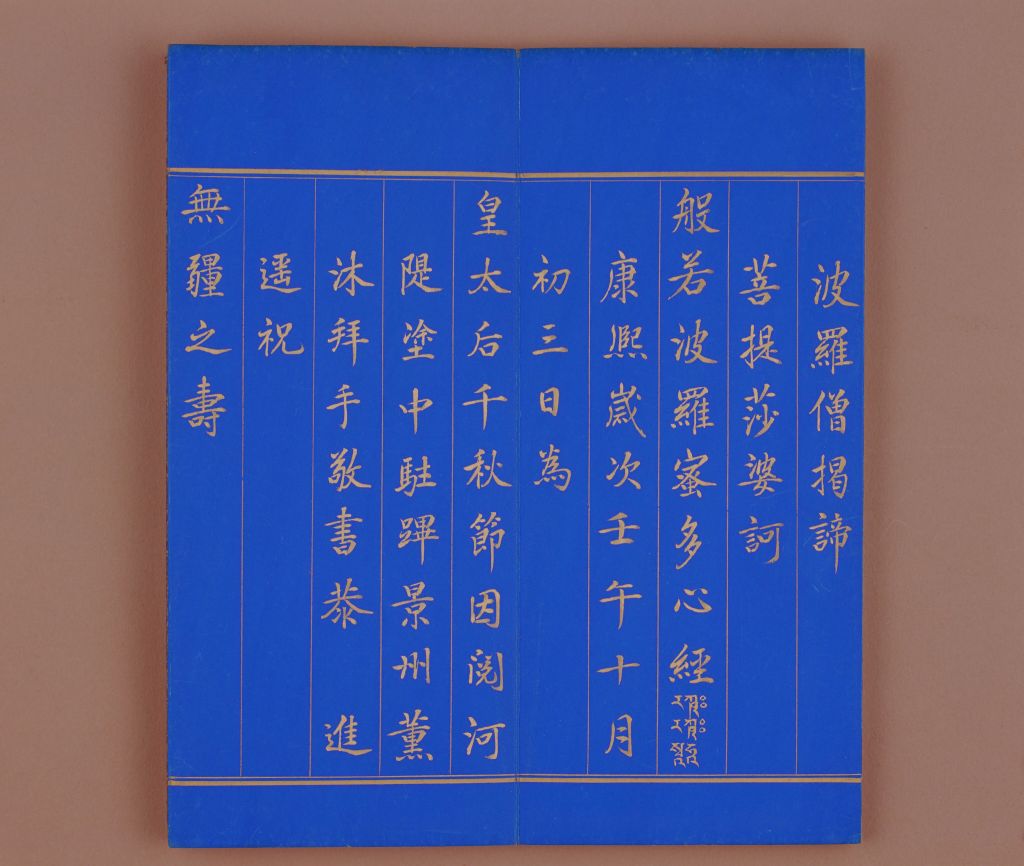 波羅僧揭諦
菩提莎婆訶
般若波羅蜜多心經
康熙歲次壬午十月
初三日為
皇太后千秋節因閱河
隄塗中駐蹕景州薰
沐拜手敬書恭進
遥祝
無疆之壽